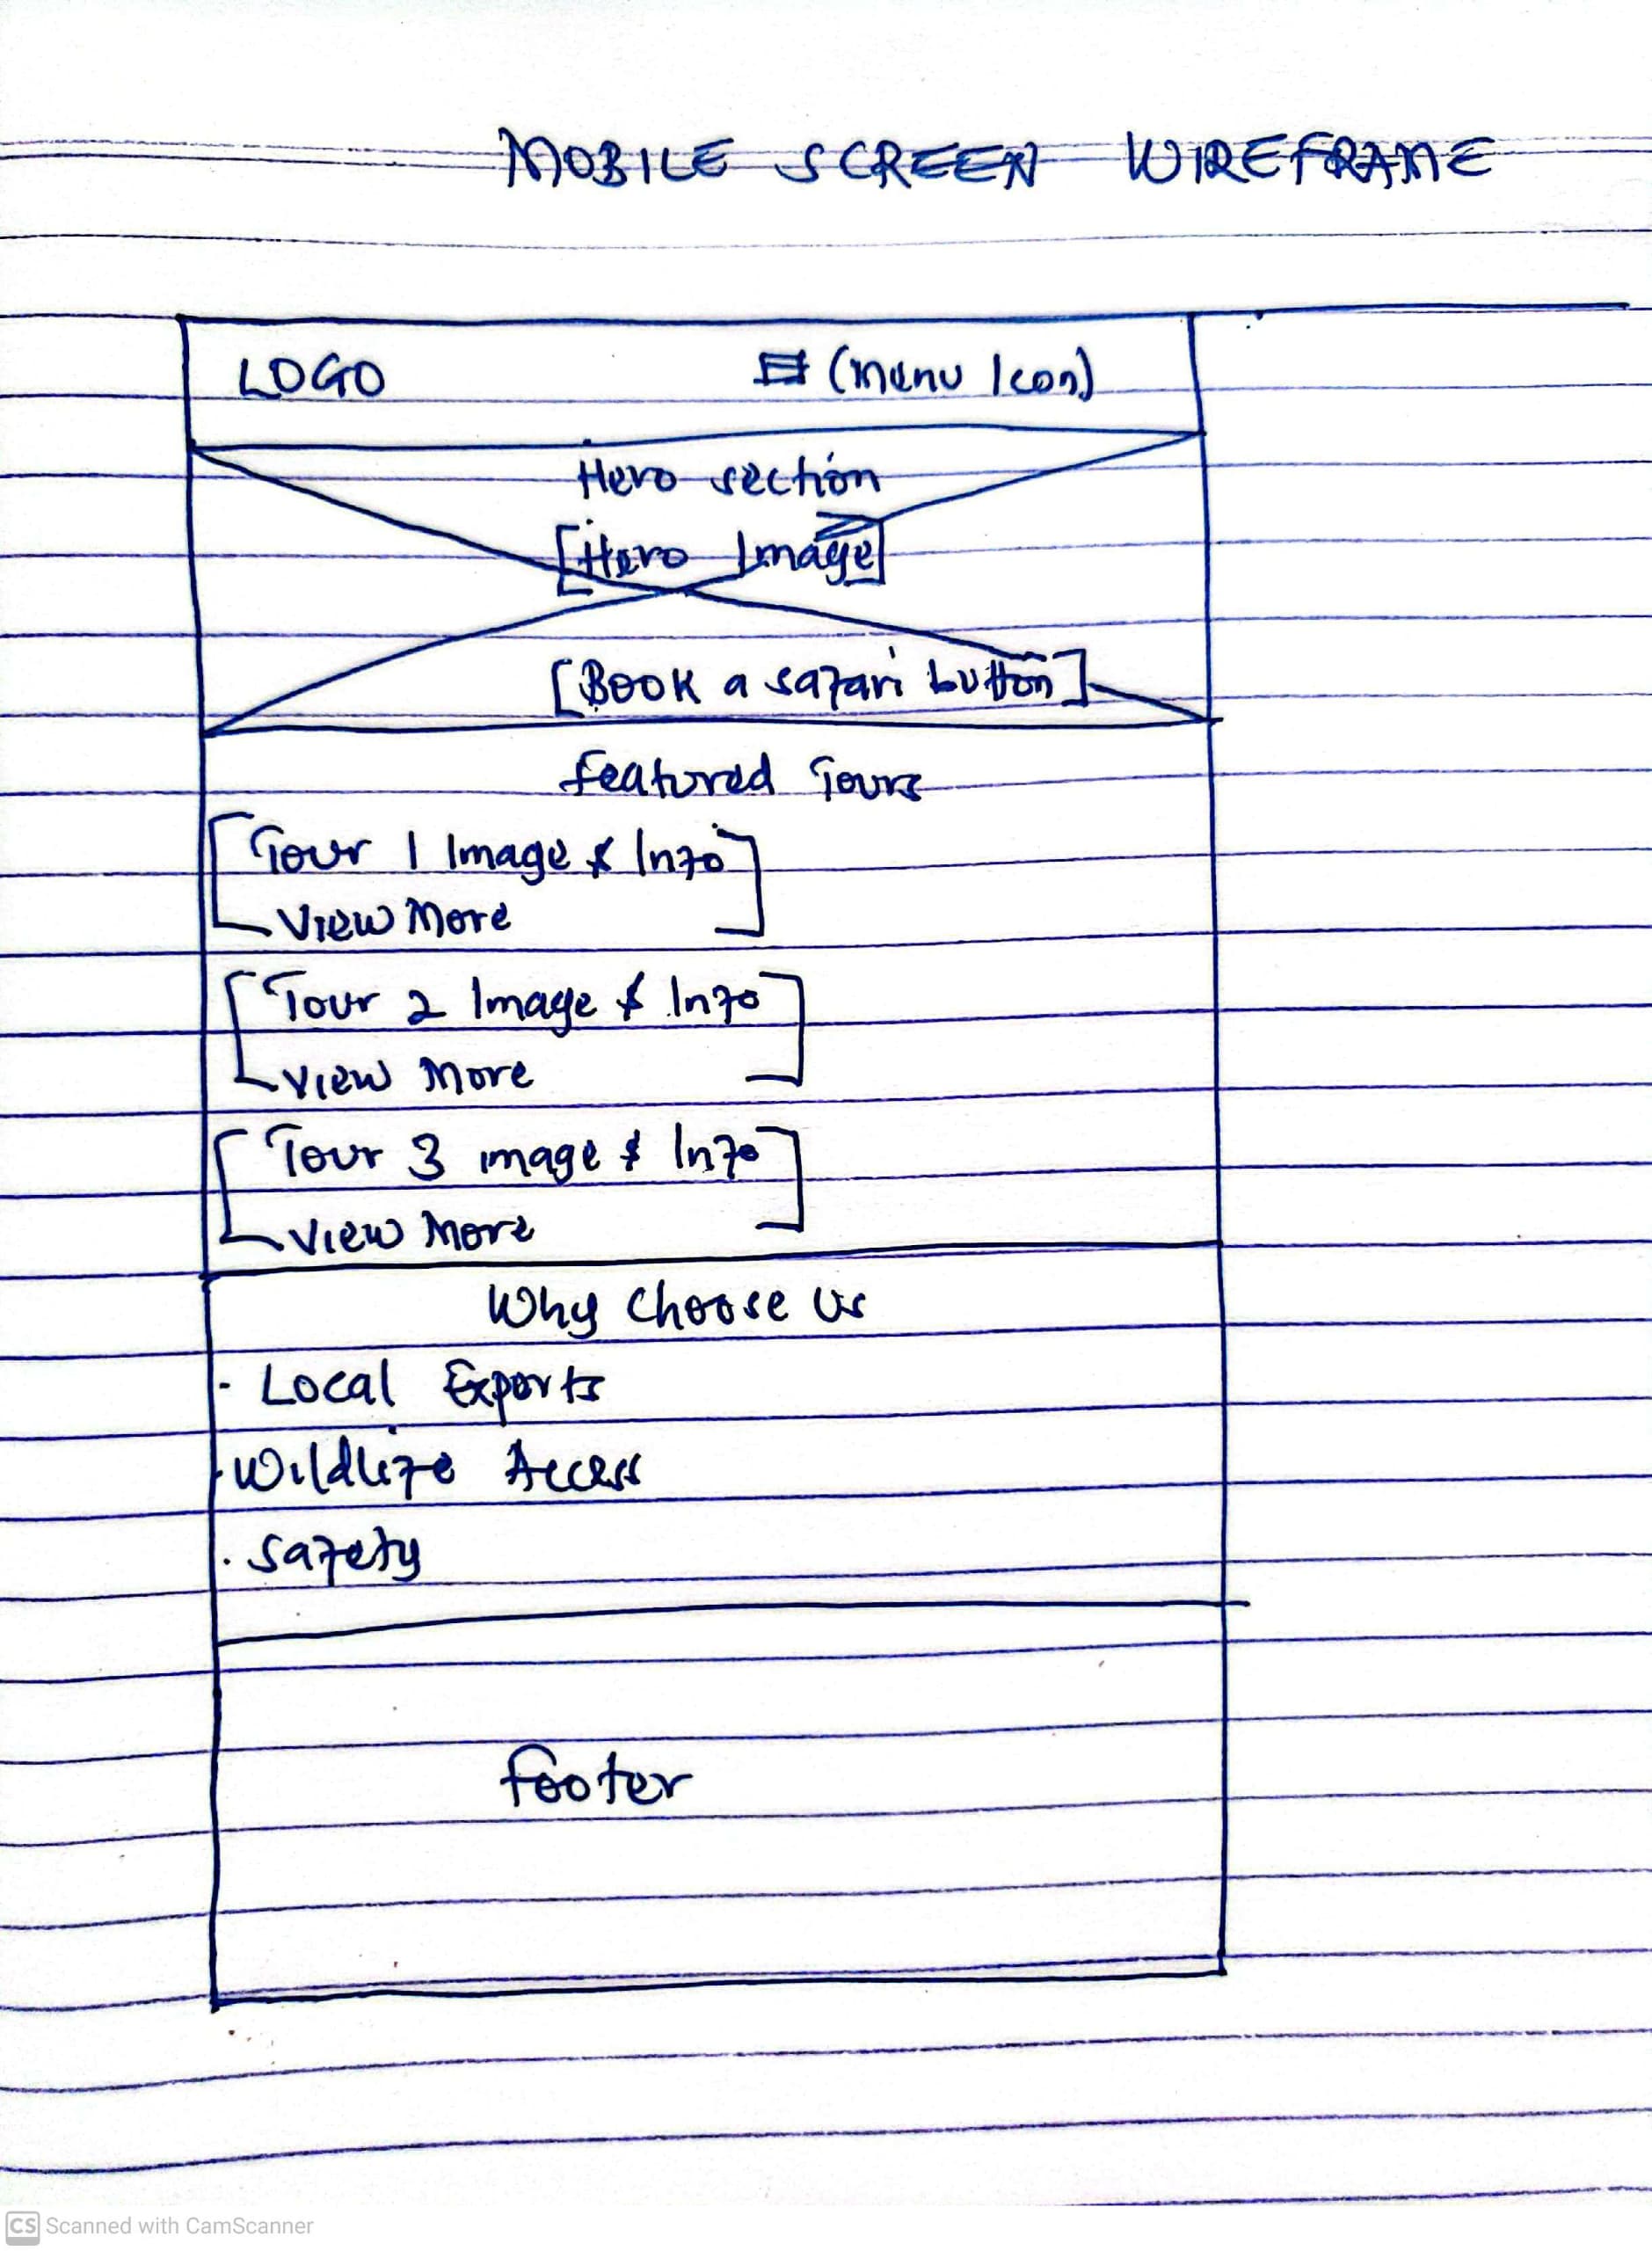 MOBILE SCREEN WIREFRAME
LOGO (Menu Icon)
Hero section
[Hero Image]
[Book a safari button]
Featured Tours
[Tour 1 Image & Info
View More]
[Tour 2 Image & Info
View More]
[Tour 3 image & Info
View More]
Why Choose Us
· Local Experts
· Wildlife Access
· Safety
Footer
CS Scanned with CamScanner